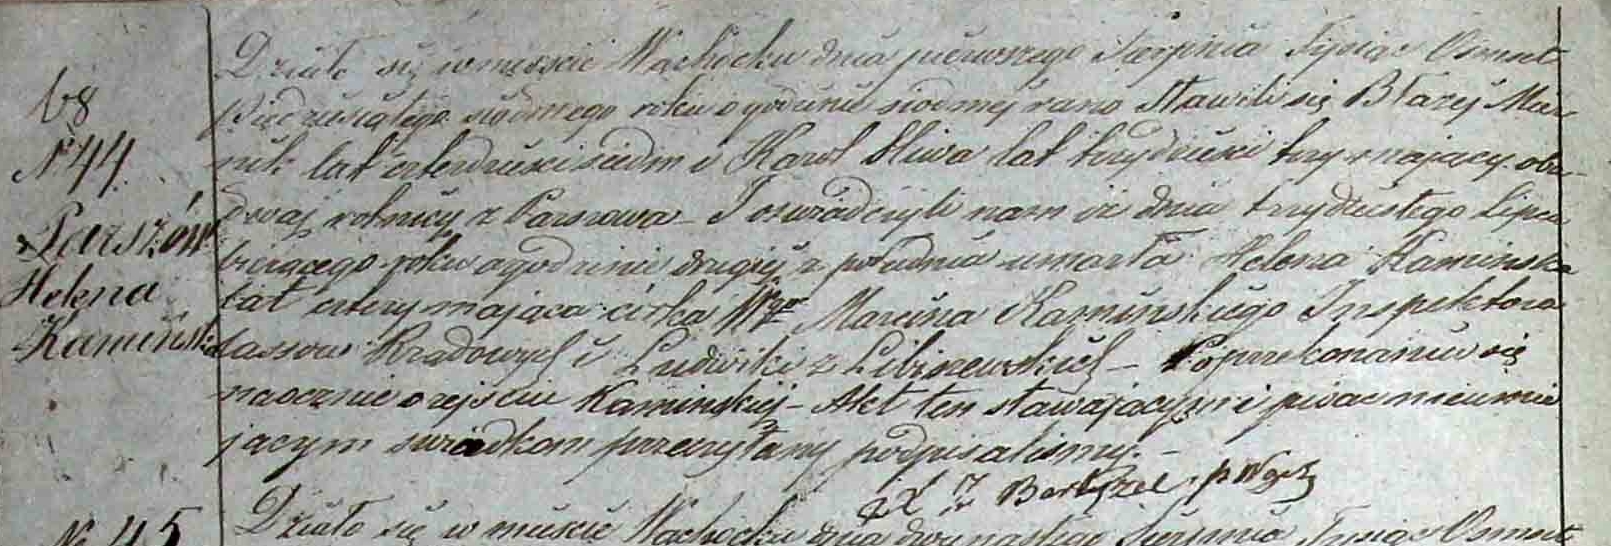 68
N 44
Parszów
Helena
Kamińska
Działo się w mieście Wąchocku dnia pierwszego Sierpnia Tysiąc Osmset
Pięćdziesiątego siódmego roku o godzinie siodmej rano Stawili się Błażej Mar-
nik lat czterdzieści siedm i Karol Sliwa lat trzydzieści trzy mający oba-
dwaj rolnicy z Parszowa – I oswiadczyli nam iż dnia trzydziestego Lipca
bieżącego roku o godzinie drugiej z południa umarła Helena Kamińska
lat cztery mająca córka Wgo Marcina Kamińskiego Inspektora
Lassow Rządowych i Ludwiki z Libiszewskich – Po przekonaniu się
naocznie o zejściu Kaminskiej – Akt ten stawającym i pisac nieumie
jącym swiadkom przeczytany podpisalismy. –
X
N 45
Działo się w mieście Wąchocku dnia dwunastego Sierpnia Tysiąc Osmset